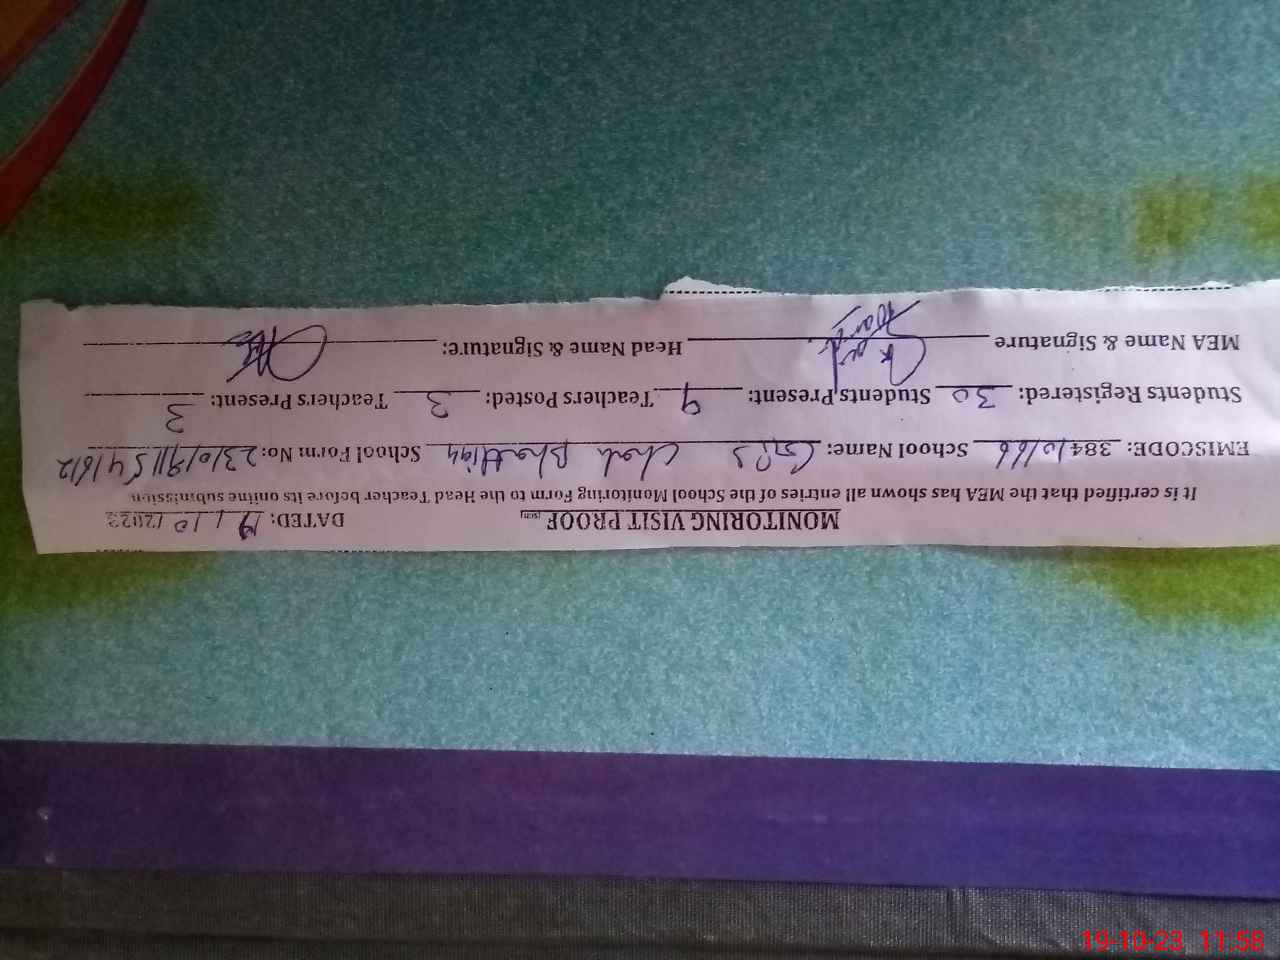 MONITORING VISIT PROOF DATED: 19/10/2023
It is certified that the MEA has shown all entries of the School Monitoring Form to the Head Teacher before its online submission
EMISCODE: 38410166 School Name: GPS Chah Bhattian School Form No: 2310191154 1612
Students Registered: 30 Students Present: 9 Teachers Posted: 3 Teachers Present: 3
MEA Name & Signature Head Name & Signature:
19-10-23 11:58